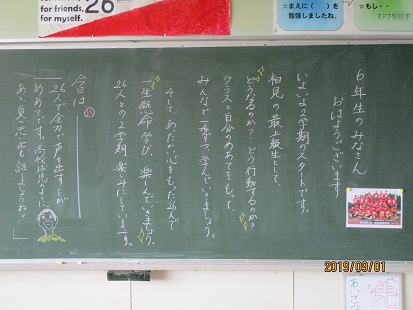 for friends,
for myself.
26
★まえに( )を
勉強しましたね。
★もし・・
わけを話
6年生のみなさん
おはようございます
いよいよ2学期のスタートです。
相見の最上級生として、
どうなるのか?どう行動するのか?
クラスと自分のめあてをもって、
みんなで一歩ずつ学んでいきましょう。
そして、あたたかい心をもった26人で
一生懸命学び、楽しんでいきましょう。
26人との2学期、楽しみにしています。
今日は
26人で全力で声を出すことが
めあてです。高校球児なみに!
あと夏の思い出も話しましょうね!!
2019/09/01